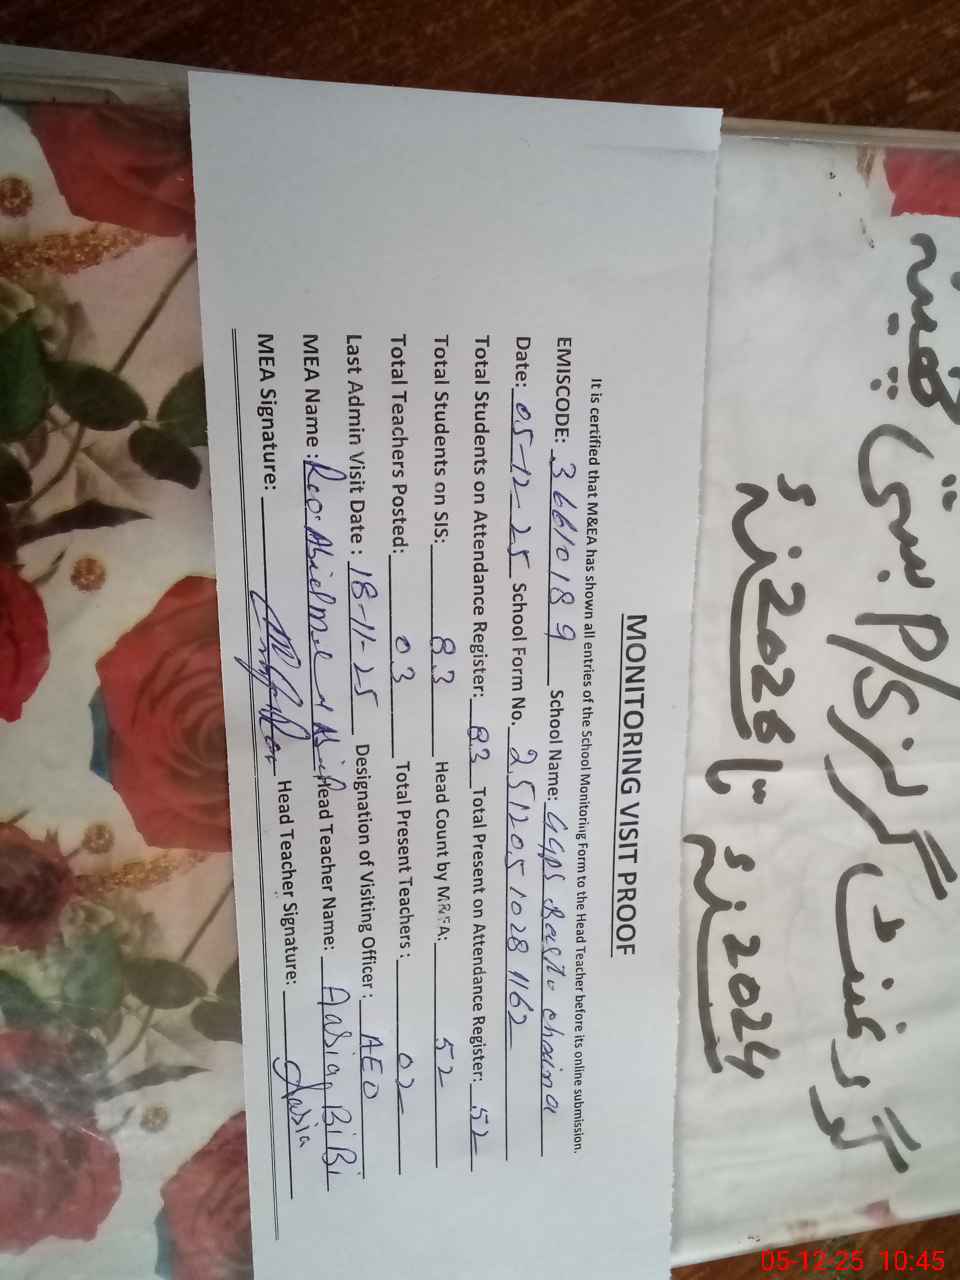 گورنمنٹ گرلز P/S بستی چھینہ
2024ء تا 2026ء
MONITORING VISIT PROOF
It is certified that M&EA has shown all entries of the School Monitoring Form to the Head Teacher before its online submission.
EMISCODE: 36610189 School Name: GGPS Basti chaina
Date: 05-12-25 School Form No. 25120510281162
Total Students on Attendance Register: 83 Total Present on Attendance Register: 52
Total Students on SIS: 83 Head Count by M&EA: 52
Total Teachers Posted: 03 Total Present Teachers: 02
Last Admin Visit Date: 18-11-25 Designation of Visiting Officer: AEO
MEA Name: Head Teacher Name: Aasia BiBi
MEA Signature: Head Teacher Signature: Aasia
05-12-25 10:45